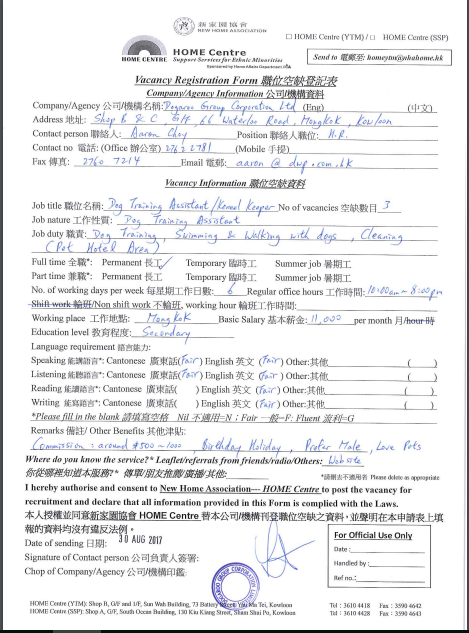 新家園協會
NEW HOME ASSOCIATION
HOME CENTRE
HOME Centre
Support Services for Ethnic Minorities
Sponsored by Home Affairs Department
□ HOME Centre (YTM) / □ HOME Centre (SSP)
Send to 電郵至: homeytm@nhahome.hk
Vacancy Registration Form 職位空缺登記表
Company/Agency Information 公司/機構資料
Company/Agency 公司/機構名稱: Dogaroo Group Corporation Ltd (Eng) (中文)
Address 地址: Shop B & C, G/F, 66 Waterloo Road, Mongkok, Kowloon
Contact person 聯絡人: Aaron Choy Position 聯絡人職位: H.R.
Contact no 電話: (Office 辦公室) 2762 2781 (Mobile 手提)
Fax 傳真: 2760 7214 Email 電郵: aaron @ dwp.com.hk
Vacancy Information 職位空缺資料
Job title 職位名稱: Dog Training Assistant/Kennel Keeper No of vacancies 空缺數目 3
Job nature 工作性質: Dog Training Assistant
Job duty 職責: Dog Training, Swimming & Walking with dogs, Cleaning
(Pet Hotel Area)
Full time 全職*: Permanent 長工✓ Temporary 臨時工 Summer job 暑期工
Part time 兼職*: Permanent 長工 Temporary 臨時工 Summer job 暑期工
No. of working days per week 每星期工作日數 6 Regular office hours 工作時間: 10:00am - 8:00pm
Shift work 輪班/Non shift work 不輪班, working hour 輪班工作時間:
Working place 工作地點: Mongkok Basic Salary 基本薪金: 11,000 per month 月/hour 時
Education level 教育程度: Secondary
Language requirement 語言能力:
Speaking 能講語言*: Cantonese 廣東話(Fair) English 英文 (Fair) Other:其他 ( )
Listening 能聽語言*: Cantonese 廣東話(Fair) English 英文 (Fair) Other:其他 ( )
Reading 能讀語言*: Cantonese 廣東話( ) English 英文 (Fair) Other:其他 ( )
Writing 能寫語言*: Cantonese 廣東話( ) English 英文 (Fair) Other:其他 ( )
*Please fill in the blank 請填寫空格 Nil 不適用=N ; Fair 一般=F; Fluent 流利=G
Remarks 備註/ Other Benefits 其他津貼:
Commission : around $500 ~ 1000, Birthday Holiday, Prefer Male, Love Pets
Where do you know the service?* Leaflet/referrals from friends/radio/Others: Website
你從哪裡知道本服務?* 傳單/朋友推薦/廣播/其他: *請刪去不適用者 Please delete as appropriate
I hereby authorise and consent to New Home Association— HOME Centre to post the vacancy for
recruitment and declare that all information provided in this Form is complied with the Laws.
本人授權並同意新家園協會 HOME Centre 替本公司/機構刊登職位空缺之資料,並聲明在本申請表上填
報的資料均沒有違反法例。
Date of sending 日期: 30 AUG 2017
Signature of Contact person 公司負責人簽署:
Chop of Company/Agency 公司/機構印鑑:
For Official Use Only
Date :
Handled by :
Ref no.:
HOME Centre (YTM): Shop B, G/F and 1/F, Sun Wah Building, 73 Battery Street, Yau Ma Tei, Kowloon Tel : 3610 4418 Fax : 3590 4642
HOME Centre (SSP): Shop A, G/F, South Ocean Building, 130 Kiu Kiang Street, Sham Shui Po, Kowloon Tel : 3610 4428 Fax : 3590 4643